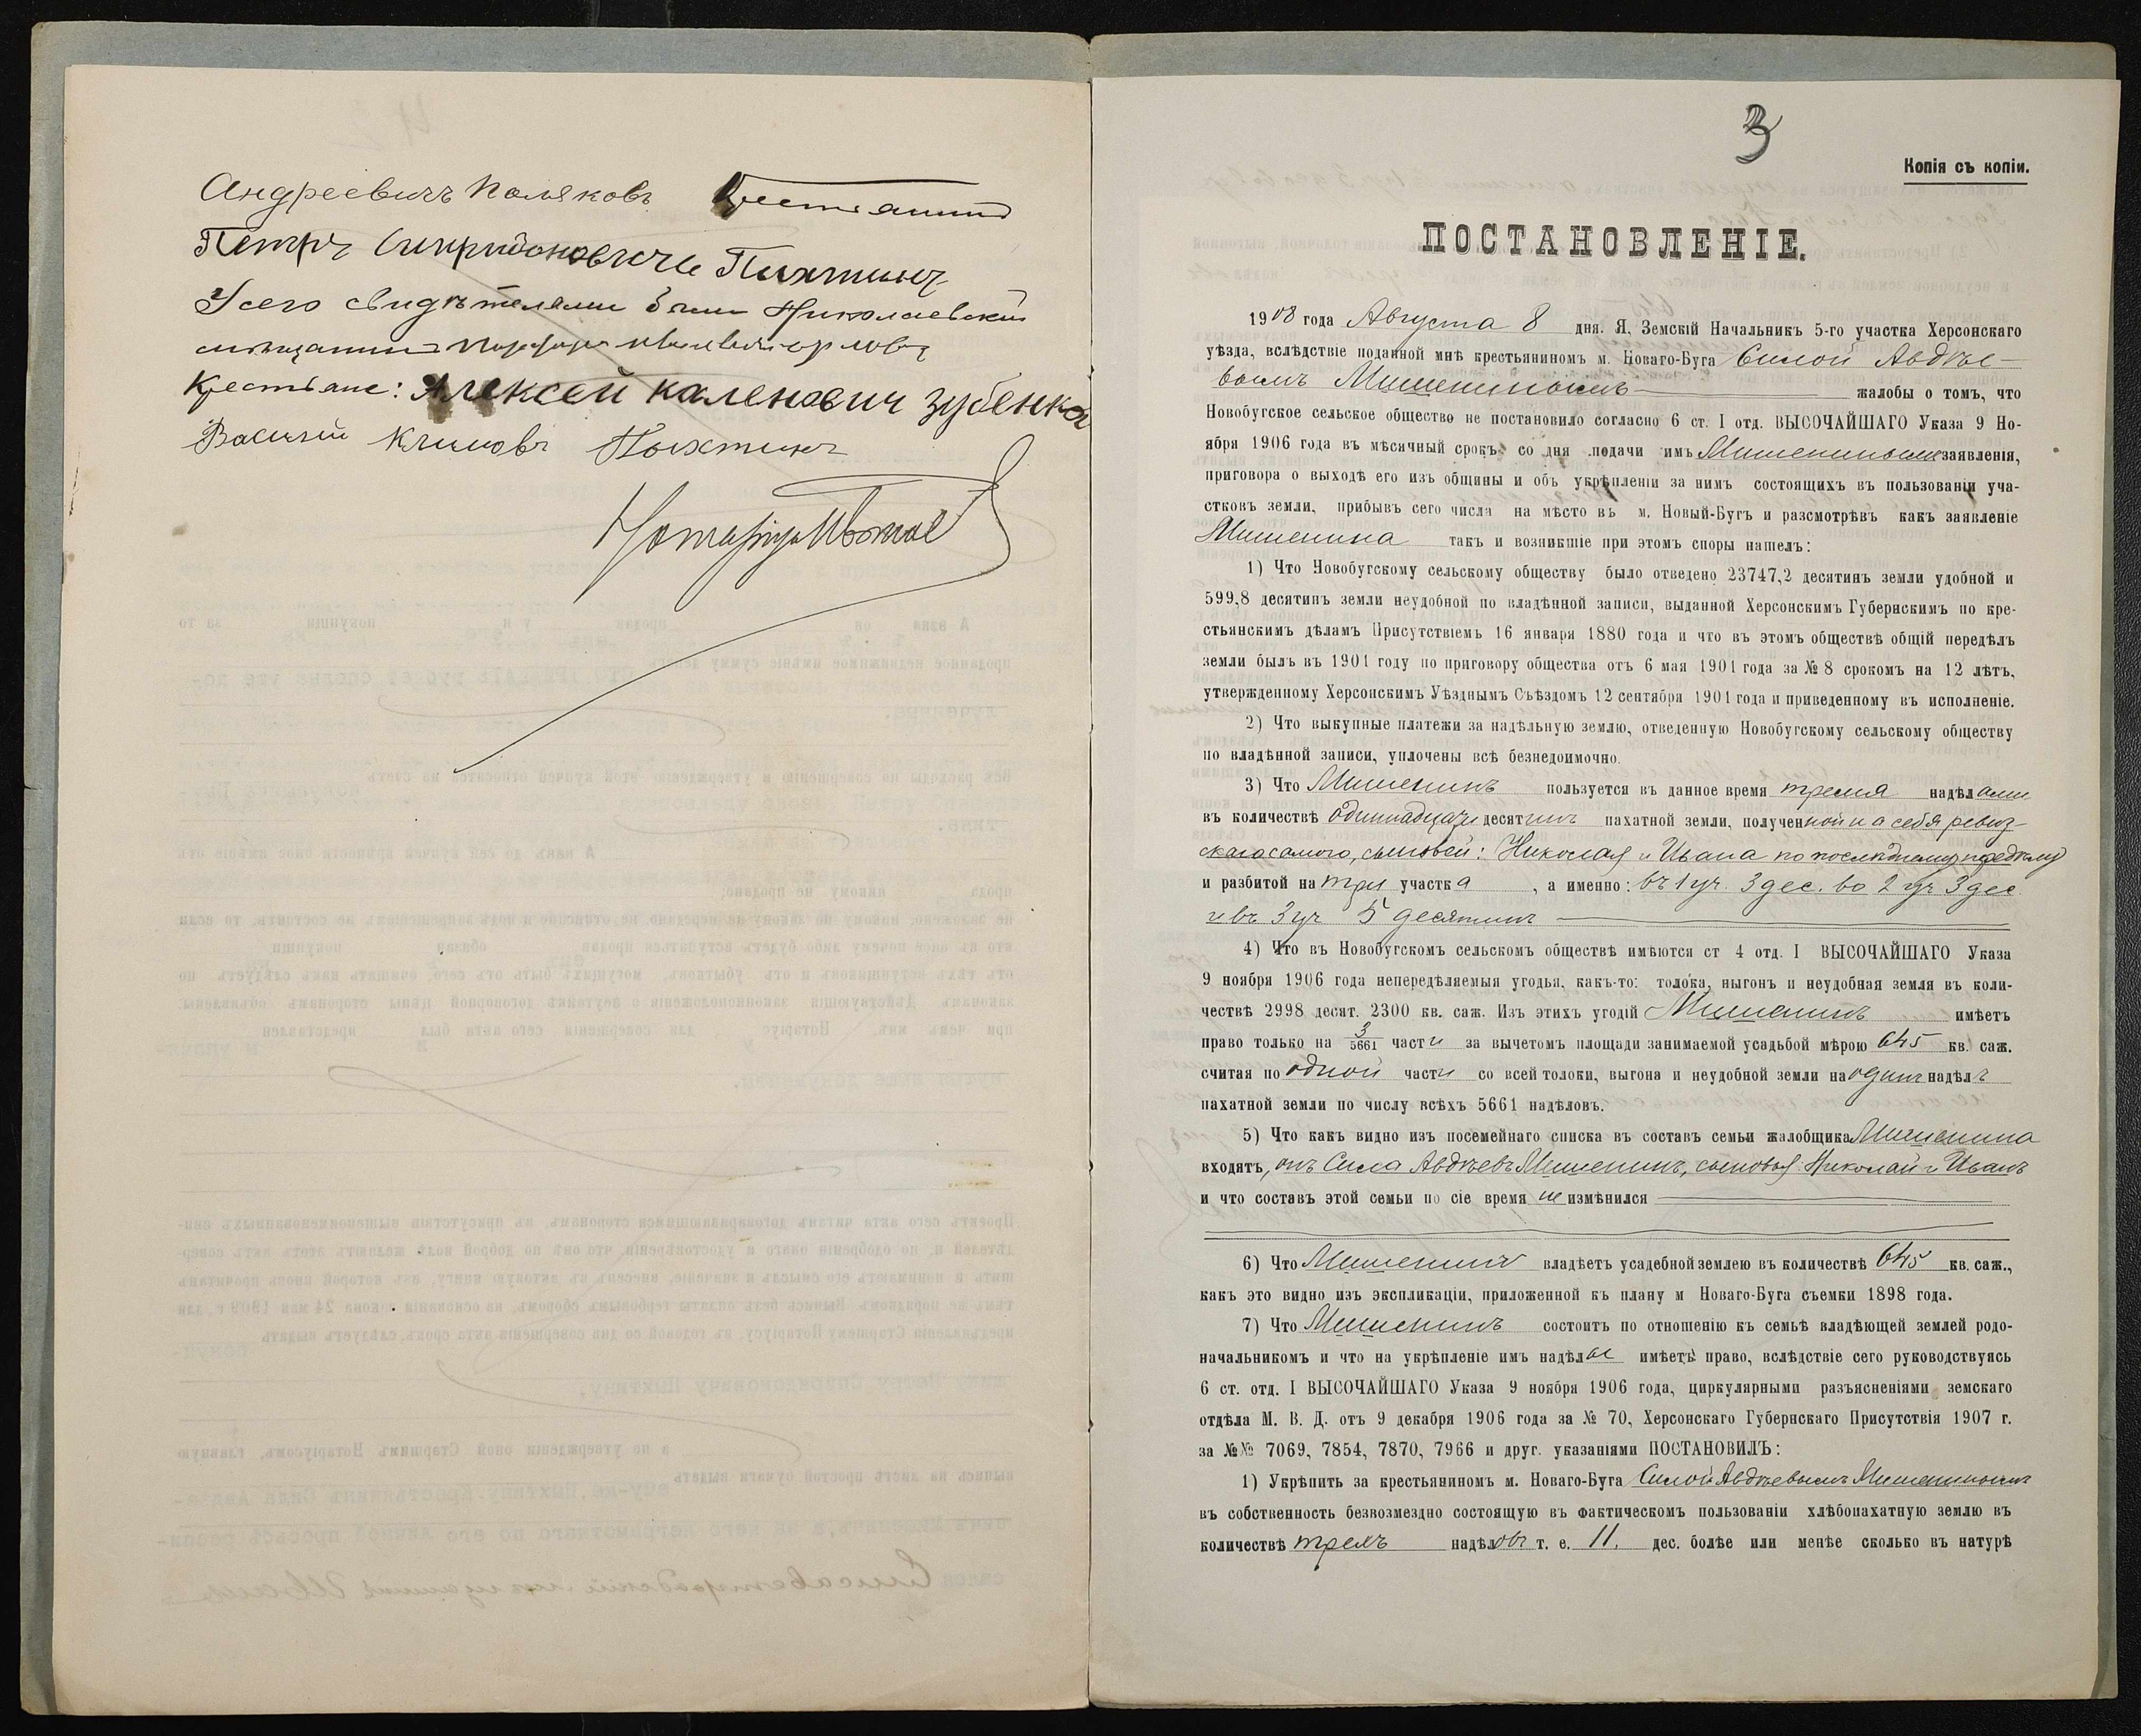 Андреевичъ Поляковъ Крестьянинъ
Петръ Спиридоновичъ Пыхтинъ
У сего свидѣтелями были Николаевскій
мѣщанинъ Орловъ
Крестьяне: Алексей каленович зубенко
Василій Климовъ Пыхтинъ
Нотаріусъ
3
Копія съ копіи.
ПОСТАНОВЛЕНІЕ.
1908 года Августа 8 дня. Я, Земскій Начальникъ 5-го участка Херсонскаго
уѣзда, вслѣдствіе поданной мнѣ крестьяниномъ м. Новаго-Буга Силой Авдѣе-
вымъ Мишенинымъ жалобы о томъ, что
Новобугское сельское общество не постановило согласно 6 ст. I отд. ВЫСОЧАЙШАГО Указа 9 Но-
ября 1906 года въ мѣсячный срокъ со дня подачи имъ Мишенинымъ заявленія,
приговора о выходѣ его изъ общины и объ укрѣпленіи за нимъ состоящихъ въ пользованіи уча-
стковъ земли, прибывъ сего числа на мѣсто въ м. Новый-Бугъ и разсмотрѣвъ какъ заявленіе
Мишенина такъ и возникшіе при этомъ споры нашелъ:
1) Что Новобугскому сельскому обществу было отведено 23747,2 десятинъ земли удобной и
599,8 десятинъ земли неудобной по владѣнной записи, выданной Херсонскимъ Губернскимъ по кре-
стьянскимъ дѣламъ Присутствіемъ 16 января 1880 года и что въ этомъ обществѣ общій передѣлъ
земли былъ въ 1901 году по приговору общества отъ 6 мая 1901 года за № 8 срокомъ на 12 лѣтъ,
утвержденному Херсонскимъ Уѣзднымъ Съѣздомъ 12 сентября 1901 года и приведенному въ исполненіе.
2) Что выкупные платежи за надѣльную землю, отведенную Новобугскому сельскому обществу
по владѣнной записи, уплочены всѣ безнедоимочно.
3) Что Мишенинъ пользуется въ данное время тремя надѣлами
въ количествѣ одиннадцати десятинъ пахатной земли, полученной на себя ревиз-
скаго самого, сыновей: Николая и Ивана по послѣднему передѣлу
и разбитой на три участка, а именно: въ 1 уч. 3 дес. во 2 уч 3 дес
и въ 3 уч 5 десятинъ
4) Что въ Новобугскомъ сельскомъ обществѣ имѣются ст 4 отд. I ВЫСОЧАЙШАГО Указа
9 ноября 1906 года непередѣляемыя угодья, какъ-то: толока, выгонъ и неудобная земля въ коли-
чествѣ 2998 десят. 2300 кв. саж. Изъ этихъ угодій Мишенинъ имѣетъ
право только на 3/5661 части за вычетомъ площади занимаемой усадьбой мѣрою 645 кв. саж.
считая по одной части со всей толоки, выгона и неудобной земли на одинъ надѣлъ
пахатной земли по числу всѣхъ 5661 надѣловъ.
5) Что какъ видно изъ посемейнаго списка въ составъ семьи жалобщика Мишенина
входятъ, онъ Сила Авдѣевъ Мишенинъ, сыновья: Николай и Иванъ
и что составъ этой семьи по сіе время не измѣнился
6) Что Мишенинъ владѣетъ усадебной землею въ количествѣ 645 кв. саж.,
какъ это видно изъ экспликаціи, приложенной къ плану м Новаго-Буга съемки 1898 года.
7) Что Мишенинъ состоитъ по отношенію къ семьѣ владѣющей землей родо-
начальникомъ и что на укрѣпленіе имъ надѣлы имѣетъ право, вслѣдствіе сего руководствуясь
6 ст. отд. I ВЫСОЧАЙШАГО Указа 9 ноября 1906 года, циркулярными разъясненіями земскаго
отдѣла М. В. Д. отъ 9 декабря 1906 года за № 70, Херсонскаго Губернскаго Присутствія 1907 г.
за №№ 7069, 7854, 7870, 7966 и друг. указаніями ПОСТАНОВИЛЪ:
1) Укрѣпить за крестьяниномъ м. Новаго-Буга Силой Авдѣевымъ Мишенинымъ
въ собственность безвозмездно состоящую въ фактическомъ пользованіи хлѣбопахатную землю въ
количествѣ трехъ надѣловъ т. е. 11. дес. болѣе или менѣе сколько въ натурѣ